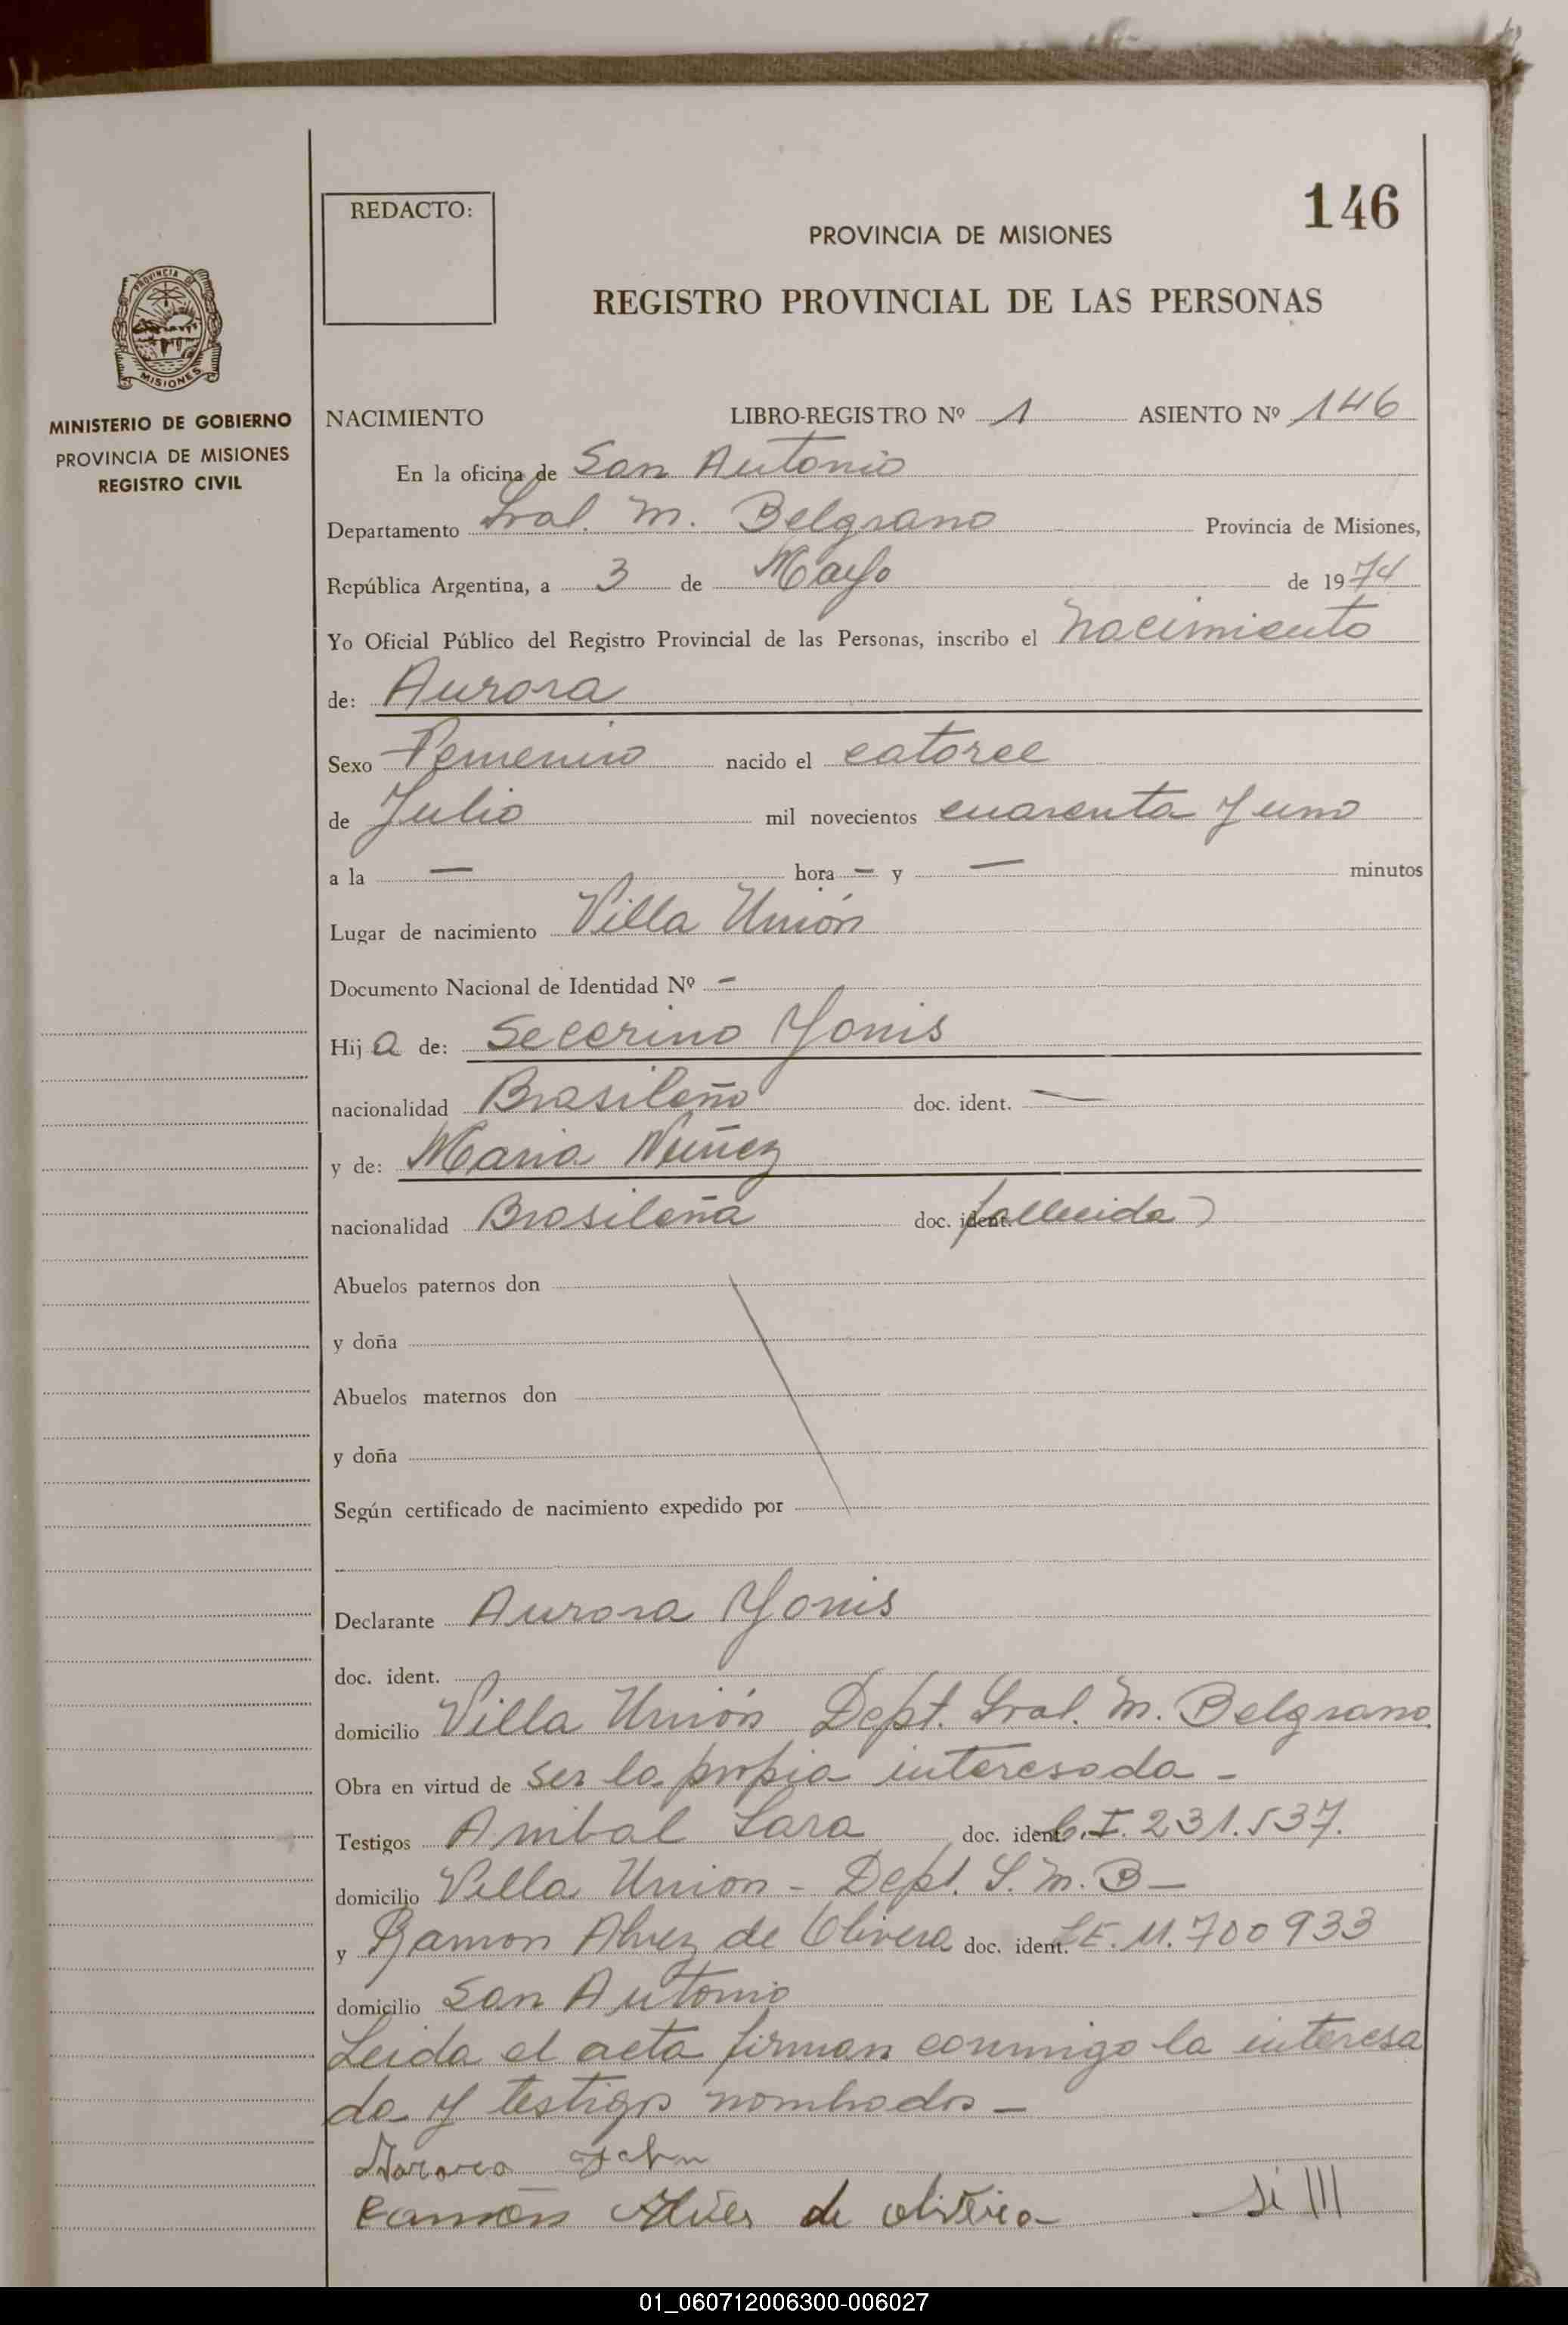 146
REDACTO:
PROVINCIA DE MISIONES
REGISTRO PROVINCIAL DE LAS PERSONAS
PROVINCIA DE
MISIONES
MINISTERIO DE GOBIERNO
PROVINCIA DE MISIONES
REGISTRO CIVIL
NACIMIENTO LIBRO-REGISTRO Nº 1 ASIENTO Nº 146
En la oficina de San Antonio
Departamento Gral. M. Belgrano Provincia de Misiones,
República Argentina, a 3 de Mayo de 1974
Yo Oficial Público del Registro Provincial de las Personas, inscribo el nacimiento
de: Aurora
Sexo Femenino nacido el catorce
de Julio mil novecientos cuarenta y uno
a la — hora – y — minutos
Lugar de nacimiento Villa Unión
Documento Nacional de Identidad Nº –
Hij a de: Severino Yonis
nacionalidad Brasileño doc. ident. —
y de: Maria Nuñez
nacionalidad Brasileña doc. ident. fallecida)
Abuelos paternos don
y doña
Abuelos maternos don
y doña
Según certificado de nacimiento expedido por
Declarante Aurora Yonis
doc. ident.
domicilio Villa Unión Dept. Gral. M. Belgrano
Obra en virtud de ser la propia interesada -
Testigos Anibal Lara doc. ident. C.I. 231.537.
domicilio Villa Union - Dept. G. M. B —
y Ramon Alvez de Olivera doc. ident. LE. M. 700933
domicilio San Antonio
Leida el acta firman conmigo la interesa
da y testigos nombrados —
Ramón Alves de oliveira
01_060712006300-006027